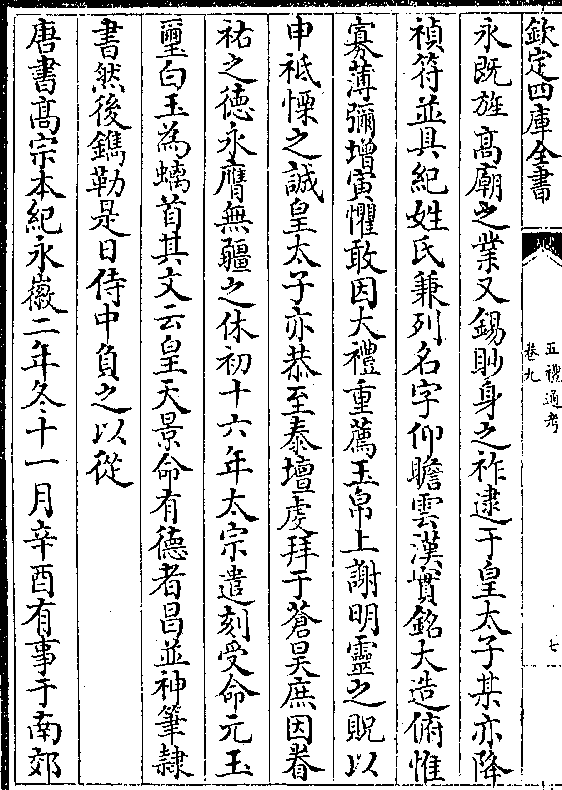 欽定四庫全書
五禮通考
卷九
七
永既旌高廟之業又錫眇身之祚逮于皇太子某亦降
禎符並具紀姓氏兼列名字仰瞻雲漢實銘大造俯惟
寡薄彌增寅懼敢因大禮重薦玉帛上謝明靈之貺以
申祗慄之誠皇太子亦恭至泰壇虔拜于蒼昊庶因眷
祐之德永膺無疆之休初十六年太宗遣刻受命元玉
璽白玉為螭首其文云皇天景命有德者昌並神筆隷
書然後鐫勒是日侍中負之以從
唐書髙宗本紀永徽二年冬十一月辛酉有事于南郊